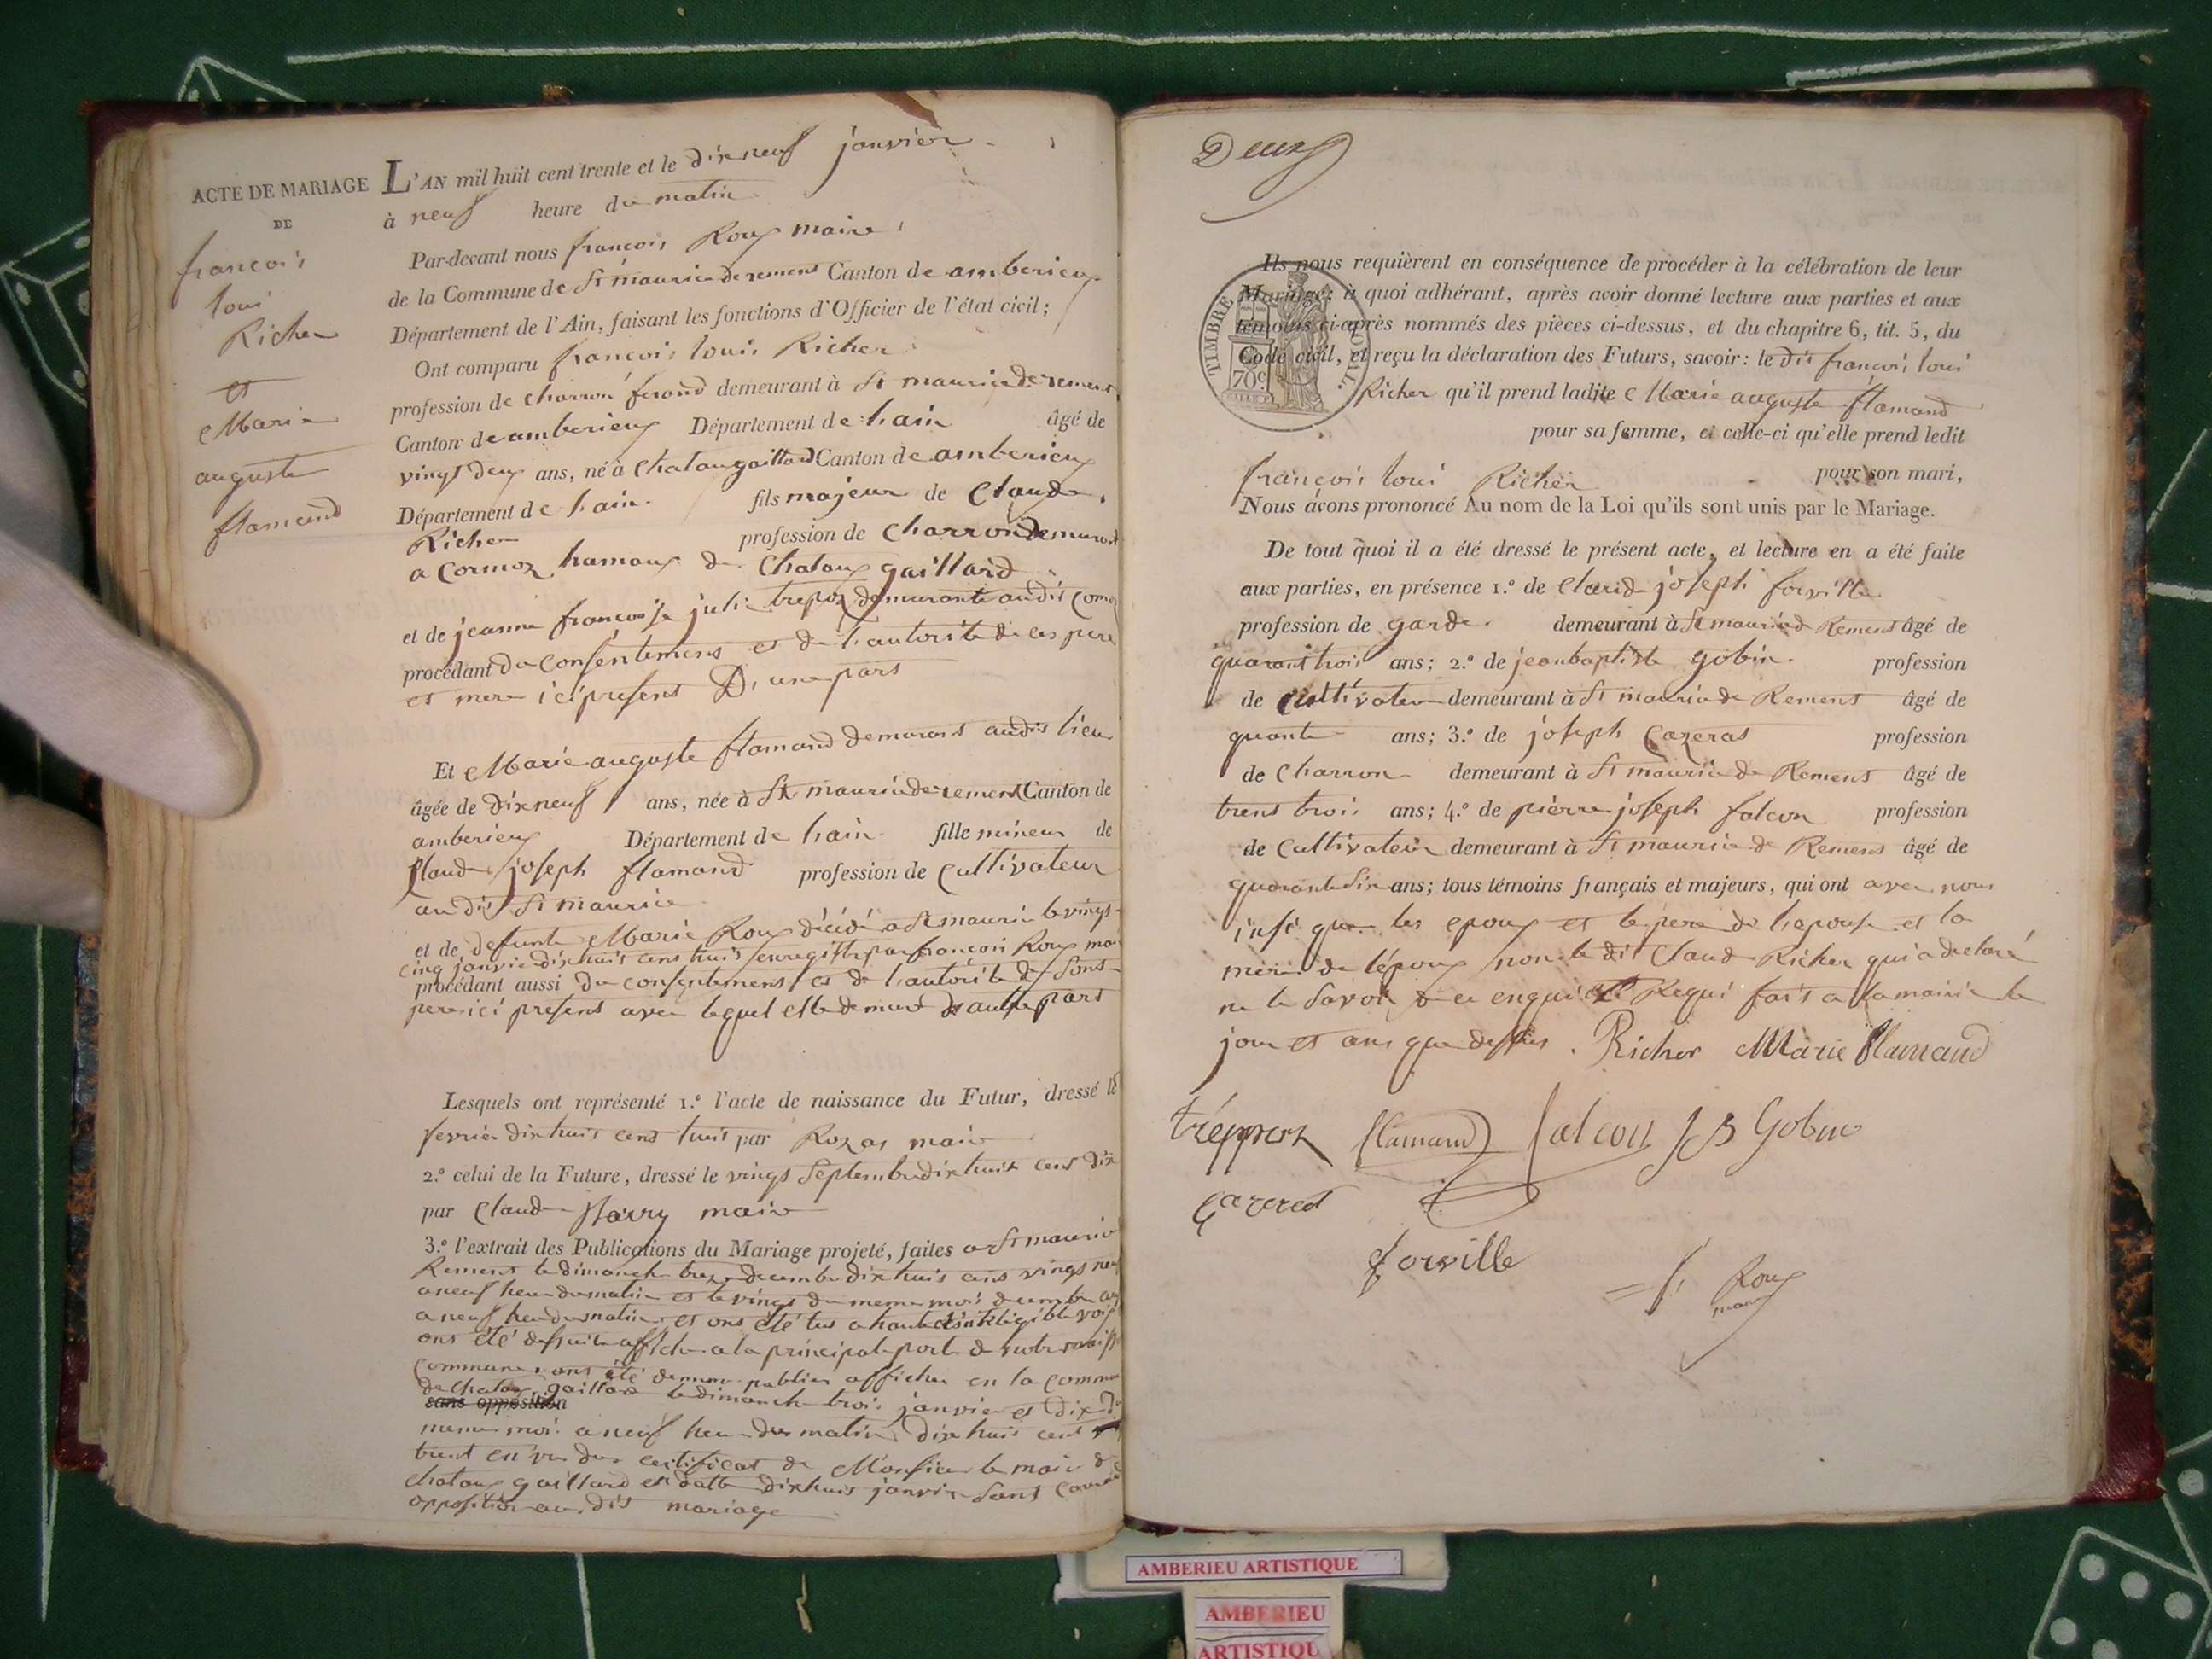 ACTE DE MARIAGE
DE
françois
loui
Richer
et
Marie
auguste
flamand
L'AN mil huit cent trente et le dix neuf janvier
à neuf heure du matin
Par-devant nous françois Roux maire
de la Commune de St mauricederemens Canton de amberieux
Département de l'Ain, faisant les fonctions d'Officier de l'état civil;
Ont comparu françois louis Richer
profession de charron demeurant à St mauricederemens
Canton de amberieux Département de lain âgé de
vingt deux ans, né à Chataugaillard Canton de amberieux
Département de lain fils majeur de Claude
Richer profession de Charron demeurant
a Cormoz hamaux de Chataux gaillard
et de jeanne françoise juli trepoz demurante audit
procédant du Consentement et de l'autorité de ces pere
et mere ici present D'une part
Et Marie auguste flamand demurant audit lieu
âgée de dix neuf ans, née à St mauricederemens Canton de
amberieux Département de lain fille mineur de
Claude joseph flamand profession de Cultivateur
au dit St maurice
et de defunte Marie Roux décédé a St maurice le vingt
cinq janvier dix huit cent huit enregistré par françois Roux
procédant aussi du consentement et de l'autorité de Sont
pere ici present avec lequel elle demure d'autre part
Lesquels ont représenté 1.º l'acte de naissance du Futur, dressé le
fevrier dix huit cent huit par Rozas maire
2.º celui de la Future, dressé le vingt Septembre dix huit cent dix
par Claude maire
3.º l'extrait des Publications du Mariage projeté, faites a St maurice
Remens le dimanche treze decembre dix huit cent vingt neuf
a neuf heure du matin et le vingt du meme mois decembre
a neuf heure du matin et ont été lus a haute et inteligible voix
ont été desuite affiche a la principale porte de notre
Commune ont été de meme publier afficher en la
de chataux gaillard le dimanche trois janvier et dix du
sans opposition
meme moi a neuf heure du matin dix huit cent
trent en vu du certificat de Monsieur le maire de
chataux gaillard en datte dix huit janvier Sant
opposition au dit mariage
Deux
TIMBRE ROYAL
70c
Ils nous requièrent en conséquence de procéder à la célébration de leur
Mariage; à quoi adhérant, après avoir donné lecture aux parties et aux
témoins ci-après nommés des pièces ci-dessus, et du chapitre 6, tit. 5, du
Code civil, et reçu la déclaration des Futurs, savoir: le dit françois loui
Richer qu'il prend ladite Marie auguste flamand
pour sa femme, et celle-ci qu'elle prend ledit
françois loui Richer pour son mari,
Nous avons prononcé Au nom de la Loi qu'ils sont unis par le Mariage.
De tout quoi il a été dressé le présent acte, et lecture en a été faite
aux parties, en présence 1.º de Claude joseph forville
profession de garde demeurant à St maurice de Remens âgé de
quarant trois ans; 2.º de jeanbaptiste gobin profession
de cultivateur demeurant à St maurice de Remens âgé de
quante ans; 3.º de joseph Cazeras profession
de Charron demeurant à St maurice de Remens âgé de
trent trois ans; 4.º de pierre joseph falcon profession
de Cultivateur demeurant à St maurice de Remens âgé de
ans; tous témoins français et majeurs, qui ont avec nous
insi que les epoux et le pere de lepouse et la
mere de l'époux non le dit Claude Richer qui a declaré
ne le Savoir Requi fait a la mairie le
jour et ans que dessus. Richer Marie flamand
tréppoz flamand falcon JB Gobin
Cazerat
forville
f Roux
maire
AMBERIEU ARTISTIQUE
AMBERIEU
ARTISTIQU